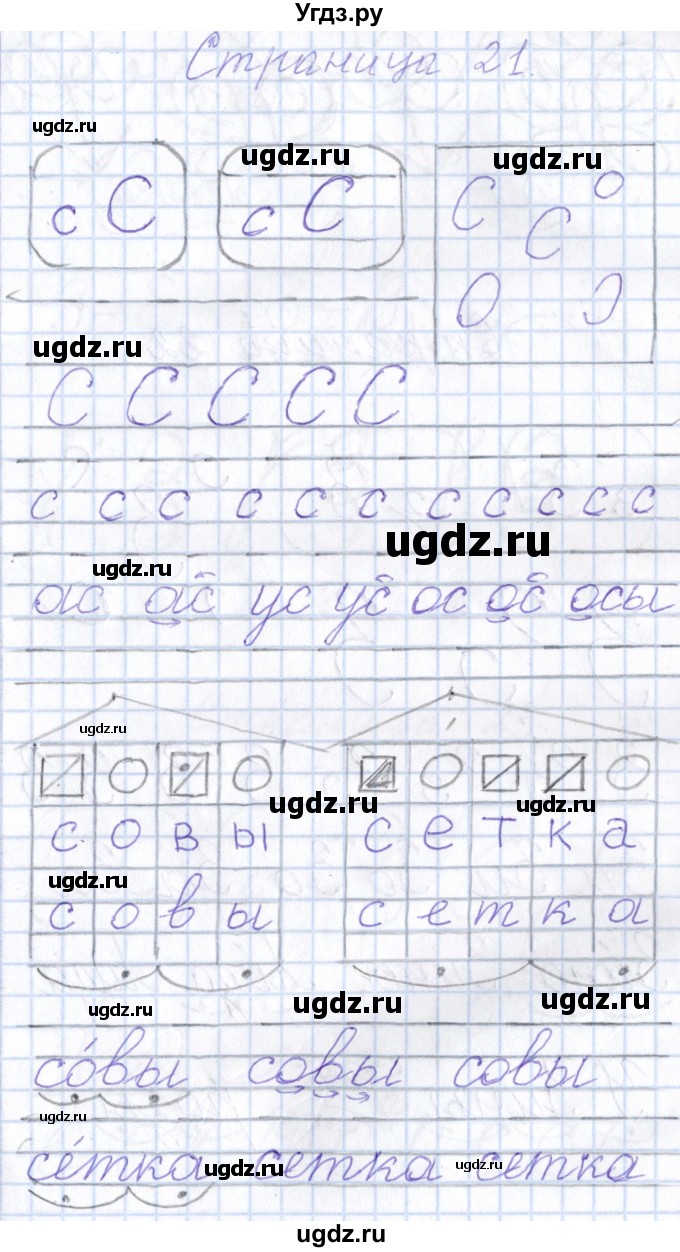 Угдз.ру
Страница 21.
ugdz.ru
ugdz.ru ugdz.ru
с С с С С о С О
ugdz.ru
С С С С С
с с с с с с с с с с с
ugdz.ru
ugdz.ru
ас ас ус ус ос ос осы
ugdz.ru
ugdz.ru ugdz.ru
с о в ы с е т к а
ugdz.ru
с о в ы с е т к а
ugdz.ru ugdz.ru ugdz.ru
со́вы совы совы
ugdz.ru
се́тка сетка сетка
ugdz.ru ugdz.ru
ugdz.ru